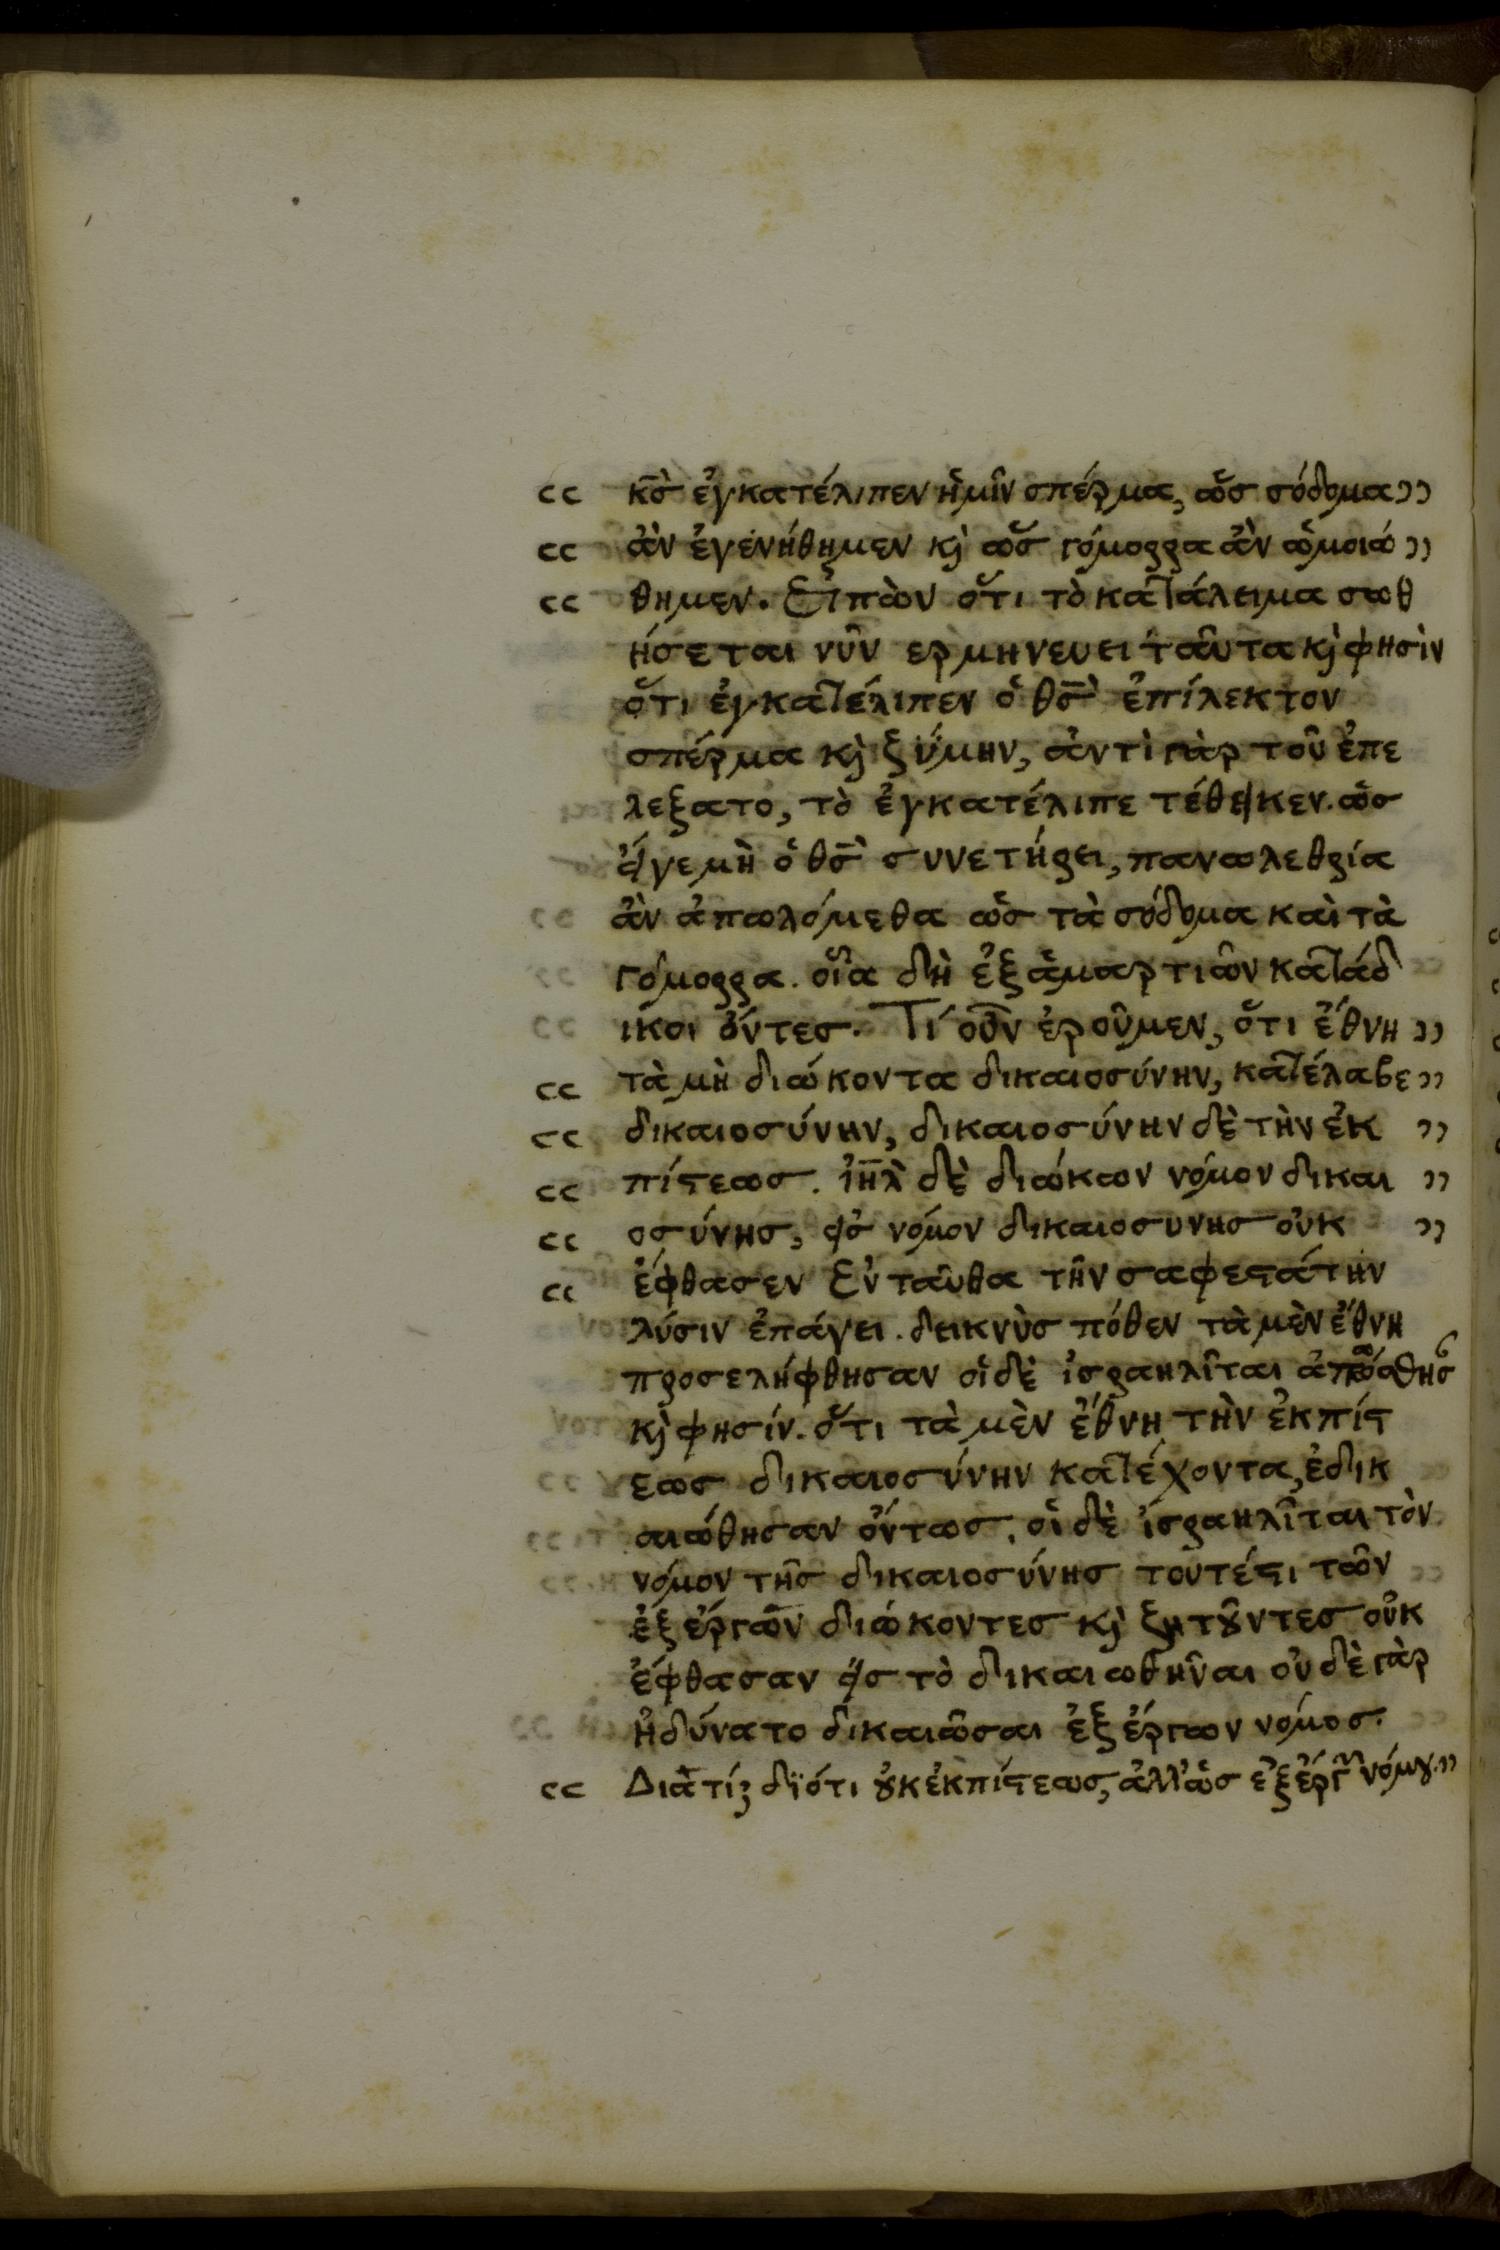 κ̅σ̅ ἐγκατέλιπεν ἡμῖν σπέρμα, ὡς σόδομα
ἂν ἐγενήθημεν κ̀ ὡς γόμορρα ἂν ὡμοιώ
θημεν. Εἰπὼν ὅτι τὸ κατάλειμα σωθ
ήσεται νῦν ερμηνευει ταῦτα κ̀ φησὶν
ὅτι ἐγκατέλιπεν ὁ θ̅σ̅ ἐπίλεκτον
σπέρμα κ̀ ζύμην, ἀντὶ γὰρ τοῦ ἐπε
λεξατο, τὸ ἐγκατέλιπε τέθεικεν. ὡς
εἴγε μὴ ὁ θ̅σ̅ συνετήρει, πανωλεθρία
ἂν ἀπωλόμεθα ὡς τὰ σόδομα καὶ τὰ
γόμορρα. οἷα δὴ ἐξ ἁμαρτιῶν κατάδ
ικοι ὄντες. Τί οὖν ἐροῦμεν, ὅτι ἔθνη
τὰ μὴ διώκοντα δικαιοσύνην, κατέλαβε
δικαιοσύνην, δικαιοσύνην δὲ τὴν ἐκ
πίστεως. ἰ̅η̅λ̅ δὲ διώκων νόμον δικαι
οσύνης, εἰσ νόμον δικαιοσυνης οὐκ
ἔφθασεν Ἐνταῦθα τὴν σαφεστάτην
λύσιν ἐπάγει. δεικνὺς πόθεν τὰ μὲν ἔθνη
προσελήφθησαν οἱ δὲ ἰσραηλῖται
κ̀ φησίν. ὅτι τὰ μὲν ἔθνη τὴν ἐκ πίστ
εως δικαιοσύνην κατέχοντα, ἐδικ
αιώθησαν ὄντως. οἱ δὲ ἰσραηλῖται τὸν
νόμον τῆς δικαιοσύνης τουτέστι τῶν
ἐξ ἔργων διώκοντες κ̀ ζητοῦντες οὐκ
ἔφθασαν εἰς τὸ δικαιωθῆναι οὐδὲ γὰρ
ἠδύνατο δικαιῶσαι ἐξ ἔργων νόμος.
Διατί; διότι οὐκ ἐκ πίστεως, ἀλλ' ὡς ἐξ ἔργ νόμου.